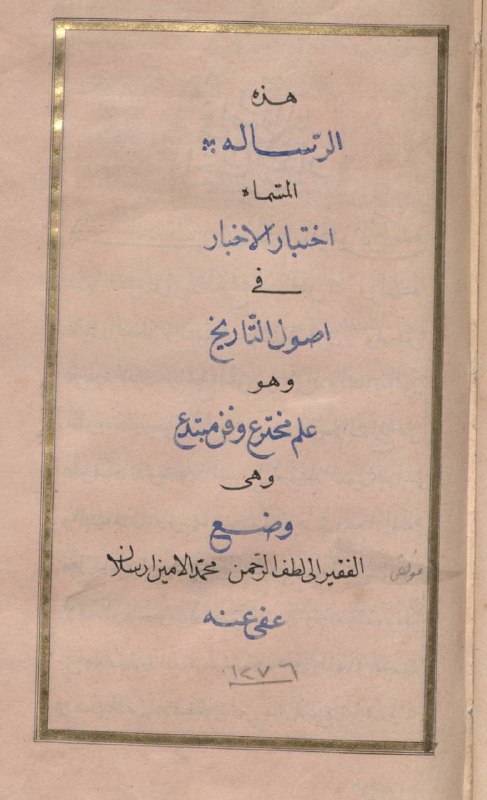 هذه
الرّساله
المسّماه
اختبار الاخبار
فى
اصول التّاريخ
وهو
علم مخترع وفن مبتدع
وهى
وضع
الفقير الى لطف الرّحمن محمّد الامين ارسلان
عفى عنه
١٢٧٦